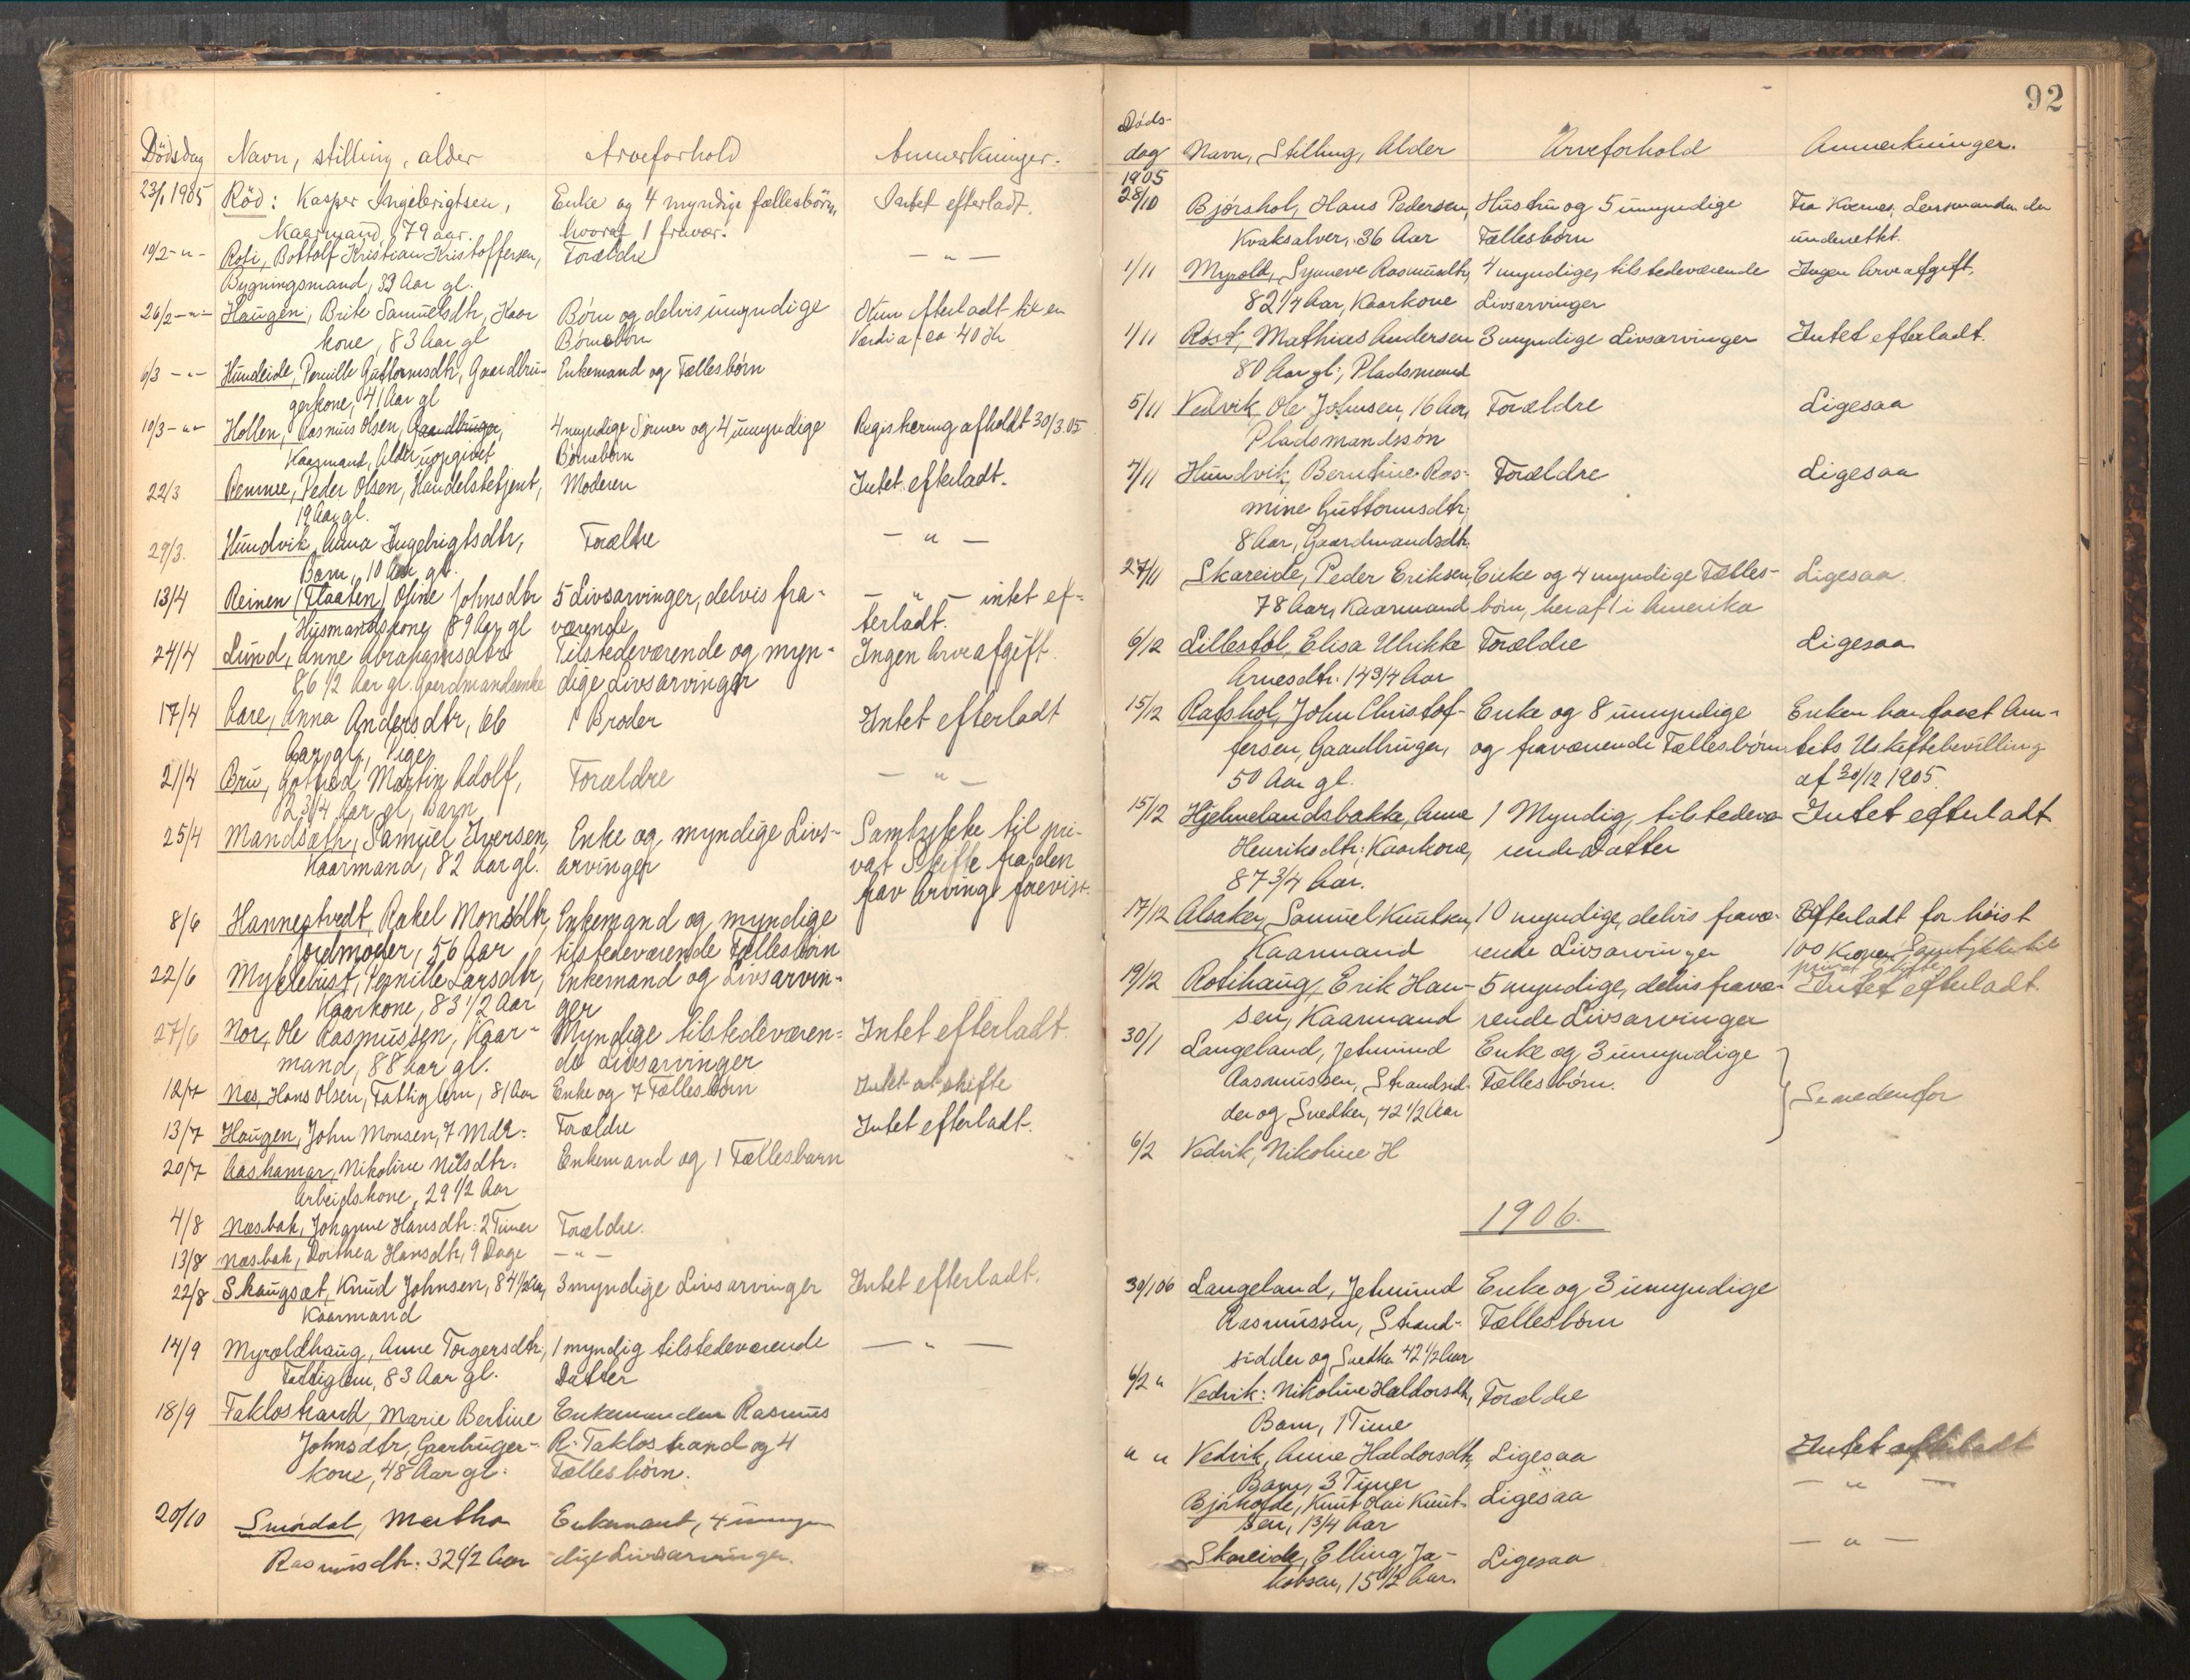 Dödsdag Navn, stilling, alder Arveforhold Anmerkninger.
23/1 1905 Röd: Kasper Ingebrigtsen, Enke og 4 myndige fællesbörn, Intet efterladt.
Kaarmand, 79 aar. hvoraf 1 fravær.
19/2 -"- Roti, Bottolf Kristian Kristoffersen, Forældre — " —
Bygningsmand, 32 Aar gl.
26/2 -"- Haugen, Brite Samuelsdtr, Kaar Børn og delvis umyndige Kun efterladt til en
kone, 83 Aar gl Børnebørn Værdi af ca 40 Kr
6/3 -"- Hundeide, Pernille Guttormsdtr, Gaardbru- Enkemand og Fællesbørn
gerkone, 41 Aar gl
10/3 -"- Hollen, Rasmus Olsen, Gaardbruger, 4 myndige Sønner og 4 umyndige Registrering afholdt 30/3.05
Kaarmand, Alder uopgivet Børnebørn
22/3 Rennee, Peder Olsen, Handelsbetjent, Moderen Intet efterladt.
19 Aar gl.
29/3. Hundvik, Anna Ingebrigtsdtr, Forældre — " —
Barn, 10 Aar gl.
13/4 Reinen (Flaaten) Oline Johnsdtr 5 Livsarvinger, delvis fra- — " — intet ef-
Husmandskone, 89 Aar gl værende terladt.
24/4 Lund, Anne Abrahamsdtr Tilstedeværende og myn- Ingen Arveafgift.
86 1/2 Aar gl. Gaardmandsenke dige Livsarvinger
17/4 Aare, Anna Andersdtr, 66 1 Broder Intet efterladt
Aar gl., Pige
21/4 Bru, Gotfred Martin Adolf, Forældre — " —
2 3/4 Aar gl, Barn
25/4 Mandsæth, Samuel Iversen, Enke og myndige Livs- Samtykke til pri-
Kaarmand, 82 aar gl. arvinger vat Skifte fra den
frav Arving forevist.
8/6 Hannestvedt, Rakel Monsdtr, Enkemand og myndige
Jordmoder, 56 Aar tilstedeværende Fællesbørn
22/6 Myklebust, Pernille Larsdtr, Enkemand og Livsarvin-
Kaarkone, 83 1/2 Aar ger
27/6 Nor, Ole Rasmussen, Kaar- Myndige tilstedeværen- Intet efterladt.
mand, 88 Aar gl. de Livsarvinger
12/7 Næs, Hans Olsen, Fattiglem, 81 Aar Enke og 7 Fællesbørn Intet at skifte
13/7 Haugen, John Monsen, 7 Mdr: Forældre Intet efterladt.
20/7 Aashamar, Nikoline Nilsdtr: Enkemand og 1 Fællesbarn
Arbeidskone, 29 1/2 Aar
4/8 Næsbak, Johanne Hansdtr: 2 Timer Forældre.
13/8 Næsbak, Dorthea Hansdtr, 9 Dage — " —
22/8 Skaugsæt, Knud Johnsen, 84 1/2 Aar, 3 myndige Livsarvinger Intet efterladt.
Kaarmand
14/9 Myroldhaug, Anne Torgersdtr, 1 myndig tilstedeværende — " —
Fattiglem, 83 Aar gl. Datter
18/9 Taklostrand, Marie Bertine Enkemanden Rasmus
Johnsdtr, Gaarbruger- R. Taklostrand og 4
kone, 48 Aar gl: Fællesbørn.
20/10 Smördal, Martha Enkemand, 4 umyn
Rasmusdtr: 32 1/2 Aar dige Livsarvinger.
92
Døds-
dag Navn, Stilling, Alder Arveforhold Anmerkninger.
1905
28/10 Bjørshol, Hans Pedersen, Hustru og 5 umyndige Fra Lensmanden
Kvaksalver, 36 Aar Fællesbørn underrettet.
1/11 Myrold, Synneve Rasmusdtr, 4 myndige, tilstedeværende Ingen Arveafgift.
82 1/4 Aar, Kaarkone Livsarvinger
1/11 Røst, Mathias Andersen 3 myndige Livsarvinger Intet efterladt.
80 Aar gl:, Pladsmand
5/11 Vedvik, Ole Johnsen, 16 Aar, Forældre Ligesaa
Pladsmandssøn
7/11 Hundvik, Berntine Ras- Forældre Ligesaa
mine Guttormsdtr,
8 Aar, Gaardmandsdtr.
27/11 Skareide, Peder Eriksen, Enke og 4 myndige Fælles- Ligesaa.
78 Aar, Kaarmand børn, heraf 1 i Amerika
6/12 Lillestøl, Elisa Ulrikke Forældre Ligesaa
Arnesdtr. 14 3/4 Aar
15/12 Rafshol, John Christof- Enke og 8 umyndige Enken har faaet Am-
fersen, Gaardbruger, og fraværende Fællesbørn tets Uskiftebevilling
50 Aar gl. af 30/12 1905.
15/12 Hjelmelandsbakke, Anne 1 Myndig, tilstedevæ- Intet efterladt
Henriksdtr: Kaarkone, rende Datter
87 3/4 Aar.
17/12 Alsaker, Samuel Knutsen, 10 myndige, delvis fravæ- Efterladt for høist
Kaarmand rende Livsarvinger 100 Kroner. Samtykke til
privat Skifte
19/12 Rotihaug, Erik Han- 5 myndige, delvis fravæ- Intet efterladt.
sen, Kaarmand rende Livsarvinger
30/1 Langeland, Jetmund Enke og 3 umyndige
Rasmussen, Strandsid- Fællesbørn. Se nedenfor
der og Snedker, 42 1/2 Aar
6/2 Vedvik, Nikoline H
1906.
30/1 06 Langeland, Jetmund Enke og 3 umyndige
Rasmussen, Strand- Fællesbørn
sidder og Snedker 42 1/2 Aar
6/2 " Vedvik: Nikoline Haldorsdtr, Forældre
Barn, 1 Time
" " Vedvik, Anne Haldorsdtr, Ligesaa Intet efterladt
Barn, 3 Timer — " —
Bjørhovde, Knut Olai Knut- Ligesaa
sen, 1 3/4 Aar
Skareide, Elling Ja- Ligesaa — " —
kobsen, 15 1/2 Aar.